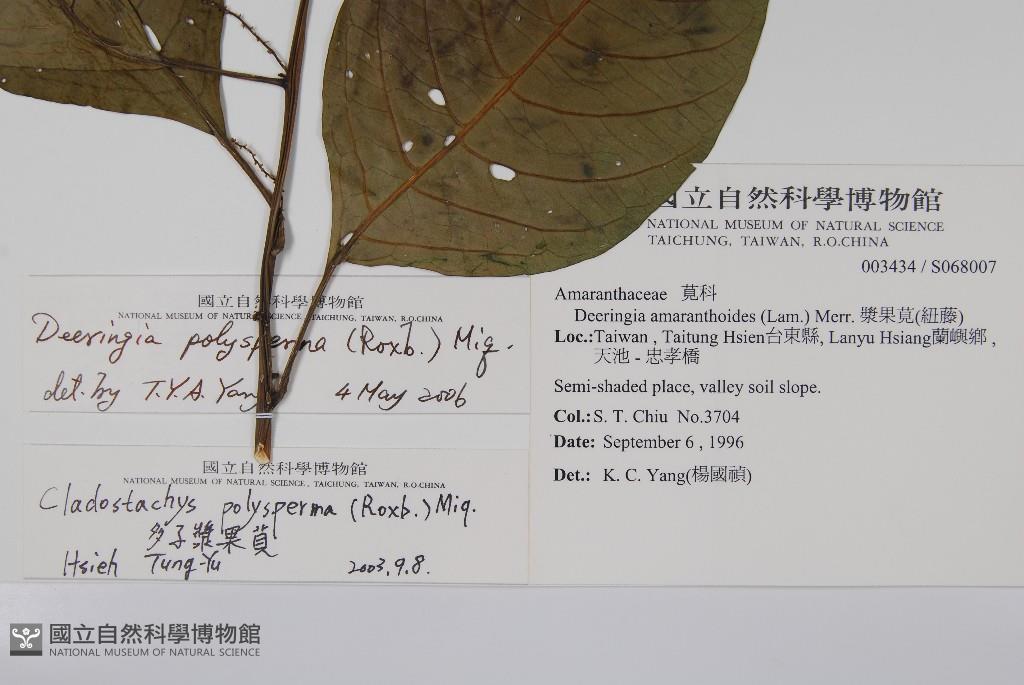 國立自然科學博物館
NATIONAL MUSEUM OF NATURAL SCIENCE
TAICHUNG, TAIWAN, R.O.CHINA
003434 / S068007
Amaranthaceae 莧科
Deeringia amaranthoides (Lam.) Merr. 漿果莧(紐藤)
Loc.:Taiwan , Taitung Hsien台東縣, Lanyu Hsiang蘭嶼鄉 ,
天池 - 忠孝橋
Semi-shaded place, valley soil slope.
Col.: S. T. Chiu No.3704
Date: September 6 , 1996
Det.: K. C. Yang(楊國禎)
國立自然科學博物館
NATIONAL MUSEUM OF NATURAL SCIENCE, TAICHUNG, TAIWAN, R.O.CHINA
Deeringia polysperma (Roxb.) Miq.
det. by T.Y.A. Yang 4 May 2006
國立自然科學博物館
NATIONAL MUSEUM OF NATURAL SCIENCE, TAICHUNG, TAIWAN, R.O.CHINA
Cladostachys polysperma (Roxb.) Miq.
多子漿果莧
Hsieh Tung-Yu 2003.9.8.
國立自然科學博物館
NATIONAL MUSEUM OF NATURAL SCIENCE